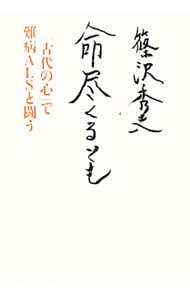 篠沢秀夫
命尽くるとも
「古代の心」で
難病ALSと闘う